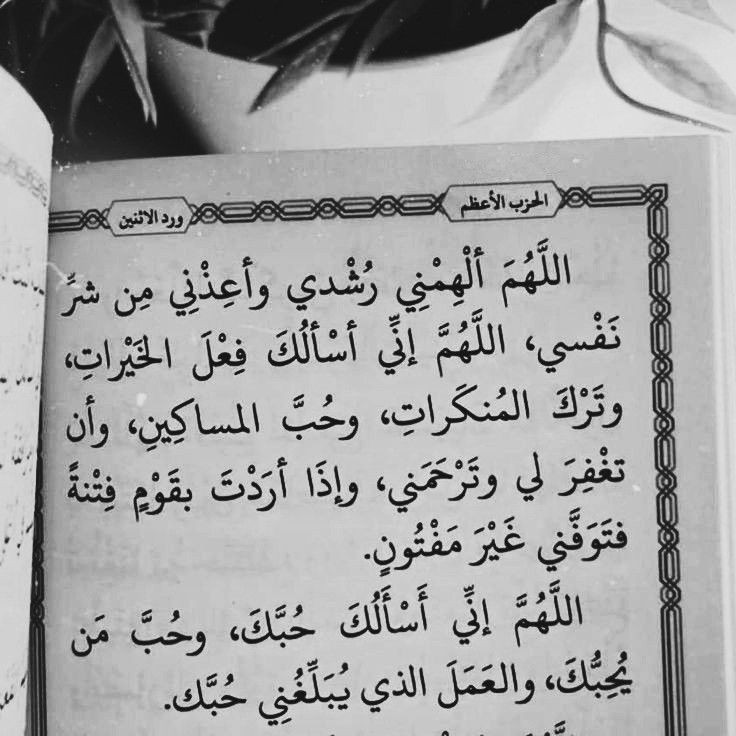 الحزب الأعظم
ورد الاثنين
اللَّهُمَ ألْهِمْنِي رُشْدي وأعِذْنِي مِن شرِّ
نَفْسي، اللَّهُمَّ إنِّي أسْألُكَ فِعْلَ الخَيْراتِ،
وتَرْكَ المُنكَراتِ، وحُبَّ المساكِينِ، وأن
تغْفِرَ لي وتَرْحَمَني، وإذَا أرَدْتَ بقَوْمٍ فِتْنةً
فتَوَفَّني غَيْرَ مَفْتُونٍ.
اللَّهُمَّ إنِّي أَسْأَلُكَ حُبَّكَ، وحُبَّ مَن
يُحِبُّكَ، والعَمَلَ الذي يُبَلِّغُنِي حُبَّك.